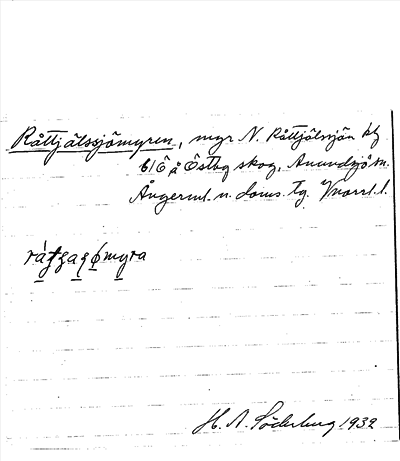 Råttjälssjömyren, myr N. Råttjälssjön kf
61Ö å Östby skog, Anundsjö sn.
Ångerml. n. doms. Tg. Vnorrl. l.
H. A. Söderberg 1932